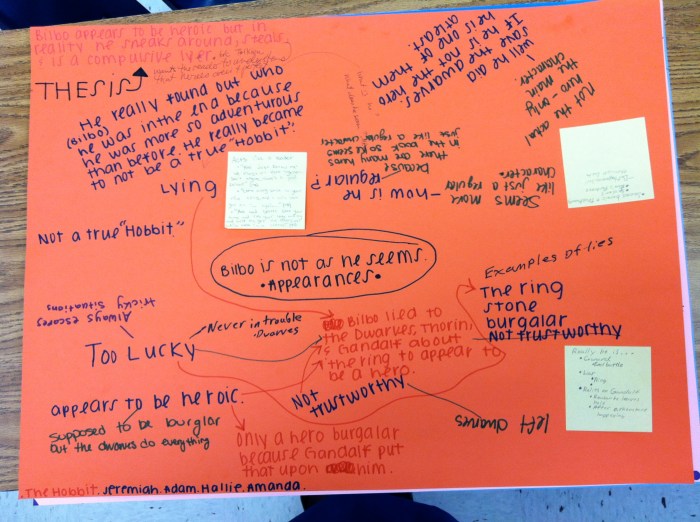 Bilbo appears to be heroic but in
reality he sneaks around, steals,
& is a compulsive lyer.
THESIS
He really found out who
(Bilbo)
he was in the end because
he was more so adventurous
than before. He really became
to not be a true "Hobbit".
well he did
save the dwarves.
If he is not the hero
he is one of them
atleast.
Not the actual
hero - only
the main
character.
Seems more
like just a regular
character.
- how is he
regular?
because
there are many heros
in the book so he seems
just like a regular character
Lying
Not a true "Hobbit"
Bilbo is not as he seems.
• Appearances •
Always escapes
tricky situations
Too Lucky
Never in trouble
Dwarves
Bilbo lied to
the Dwarves, Thorin,
& Gandalf about
the ring to appear to
be a hero.
Examples of lies
The ring
stone
burgalar
Not trustworthy
Not
trustworthy
left dwarves
appears to be heroic.
supposed to be burglar
but the dwarves do everything
Only a hero burgalar
because Gandalf put
that upon him.
Really he is...
• Coward
• Liar
• Ring
• Relies on Gandalf
The Hobbit. Jeremiah. Adam. Hallie. Amanda.